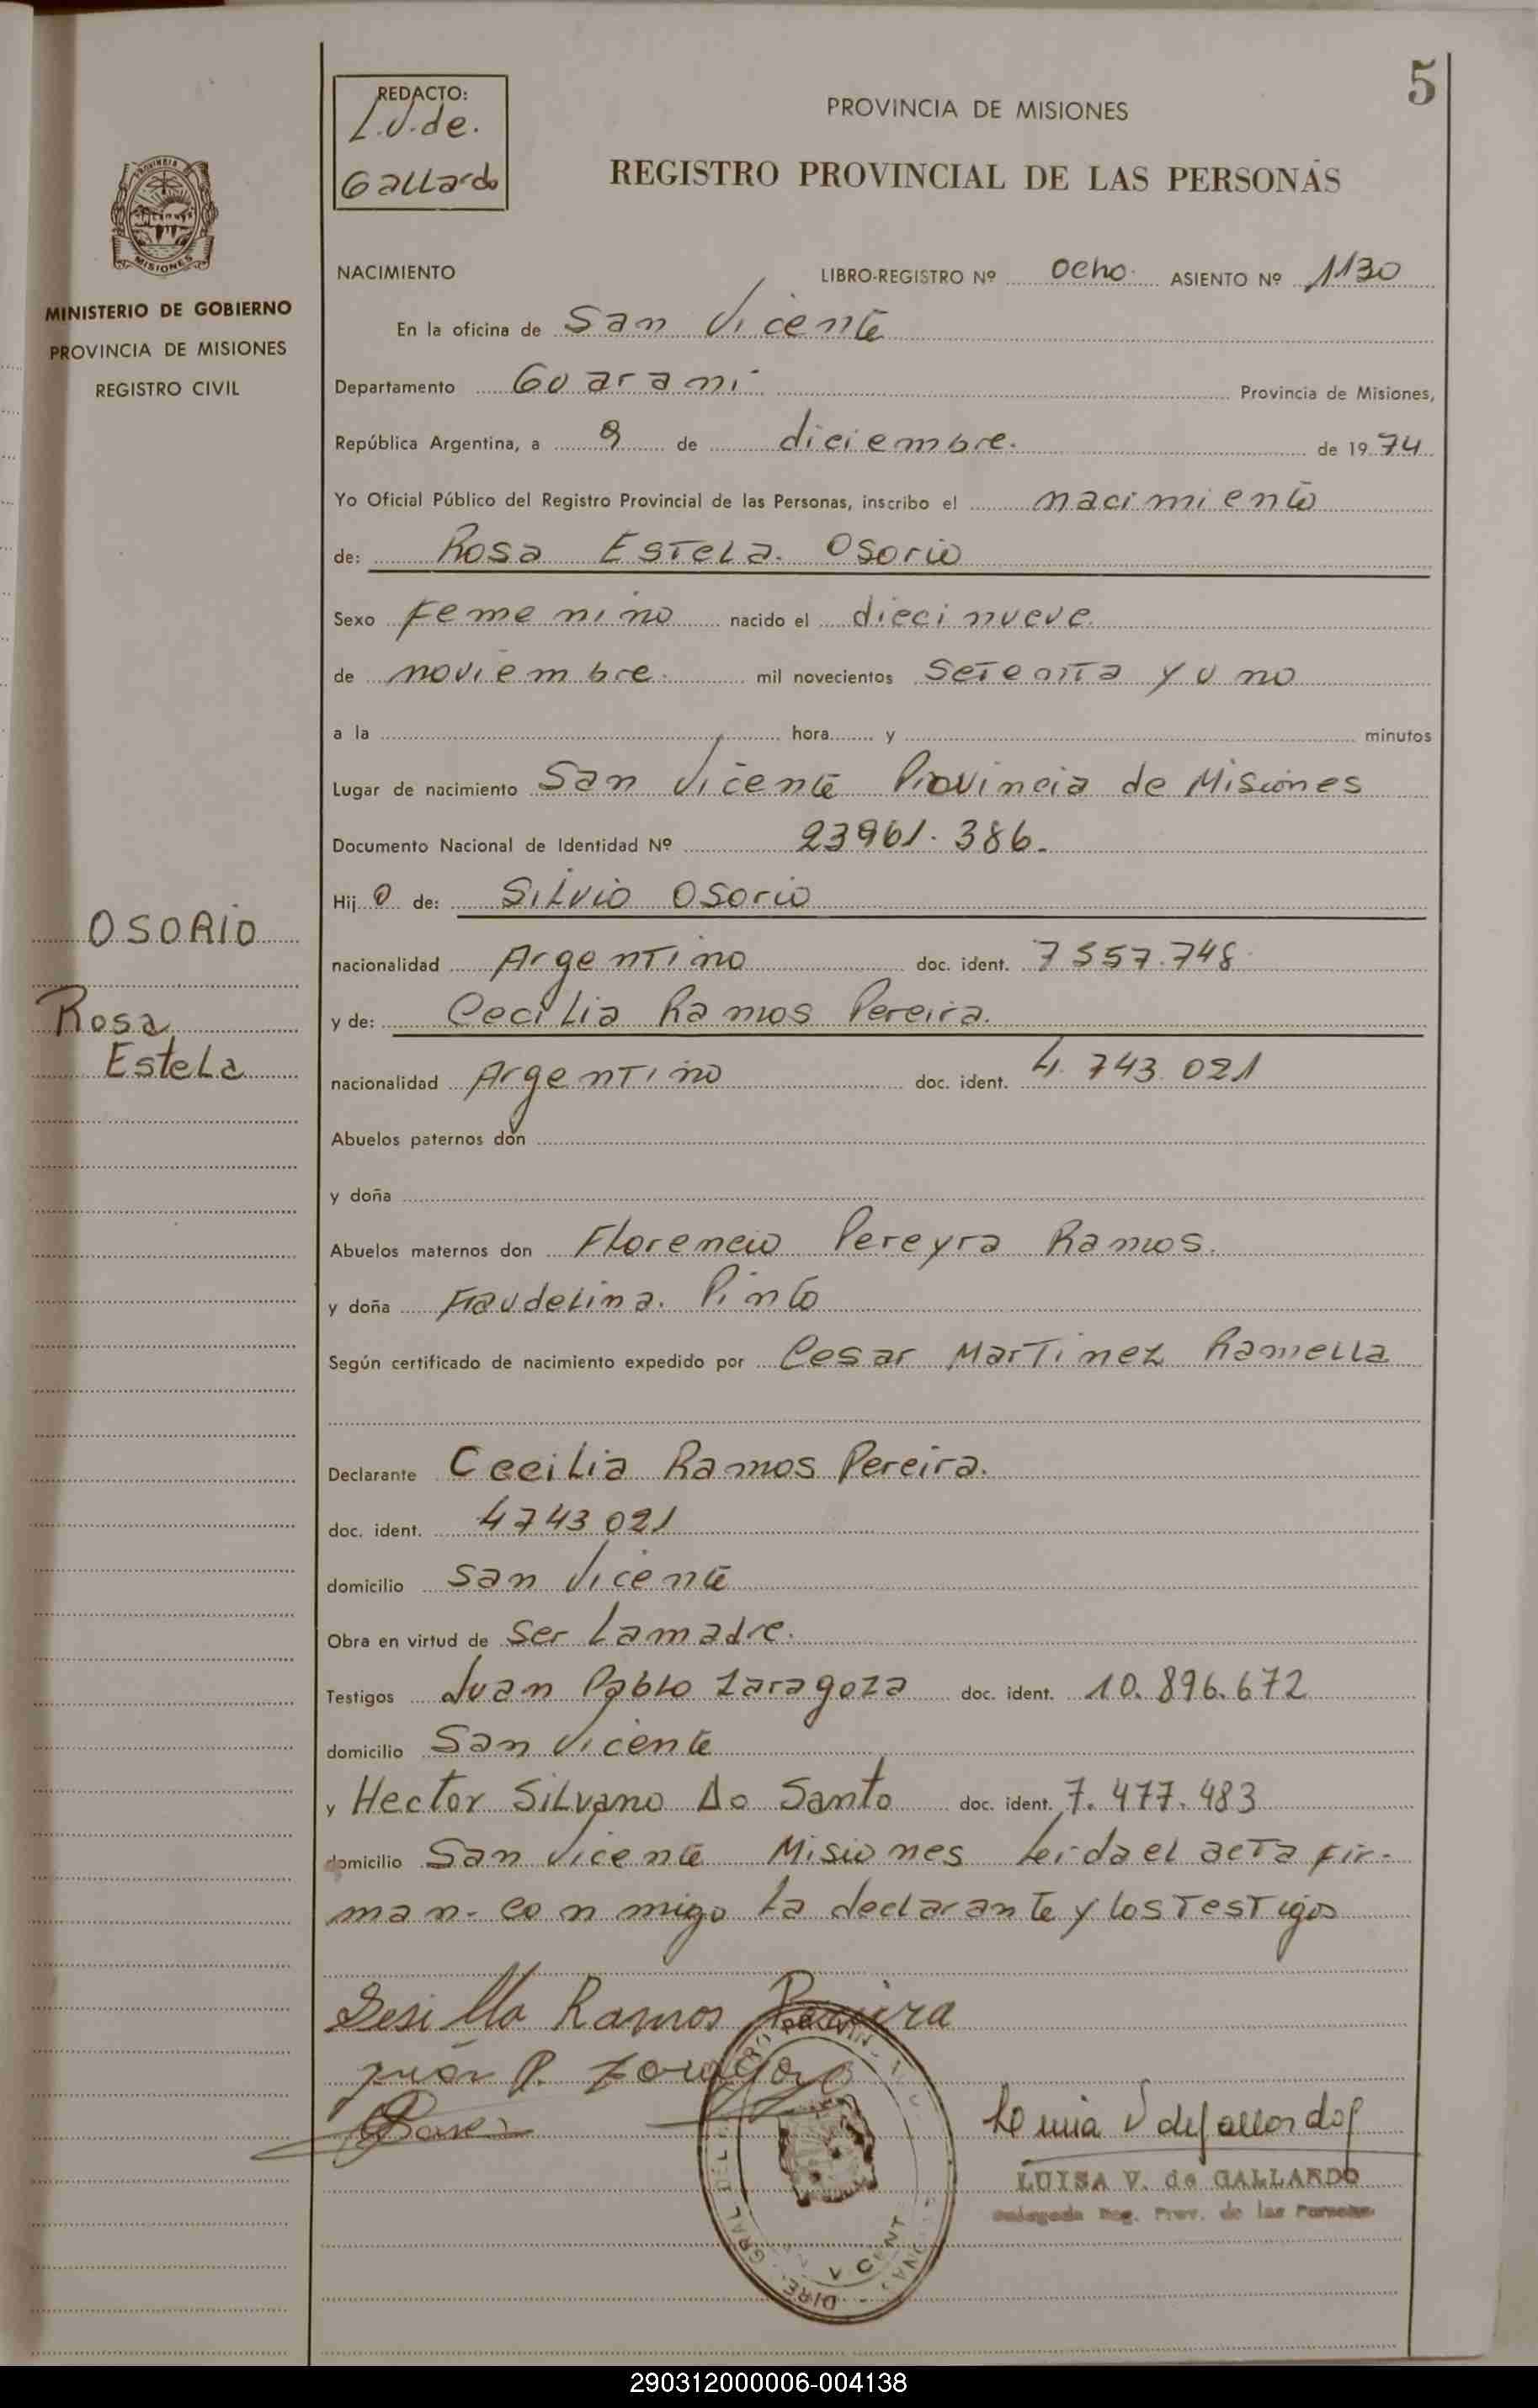 5
REDACTO:
L.V.de.
Gallardo
PROVINCIA DE MISIONES
REGISTRO PROVINCIAL DE LAS PERSONAS
MISIONES
MINISTERIO DE GOBIERNO
PROVINCIA DE MISIONES
REGISTRO CIVIL
NACIMIENTO LIBRO-REGISTRO Nº ocho. ASIENTO Nº 1130
En la oficina de San Vicente
Departamento Guarani Provincia de Misiones,
República Argentina, a 9 de diciembre. de 1974
Yo Oficial Público del Registro Provincial de las Personas, inscribo el nacimiento
de: Rosa Estela. Osorio
Sexo Femenino nacido el diecinueve.
de noviembre. mil novecientos Setenta y uno
a la hora y minutos
Lugar de nacimiento San Vicente Provincia de Misiones
Documento Nacional de Identidad Nº 23961.386.
Hij o de: Silvio Osorio
OSORIO
nacionalidad Argentino doc. ident. 7557.748
Rosa
y de: Cecilia Ramos Pereira.
Estela
nacionalidad Argentino doc. ident. 4.743.021
Abuelos paternos don
y doña
Abuelos maternos don Florencio Pereyra Ramos.
y doña Fraudelina. Pinto
Según certificado de nacimiento expedido por Cesar Martinez Ramella
Declarante Cecilia Ramos Pereira.
doc. ident. 4743021
domicilio San Vicente
Obra en virtud de Ser La madre.
Testigos Juan Pablo Zaragoza doc. ident. 10.896.672
domicilio San Vicente
y Hector Silvano Do Santo doc. ident. 7.477.483
domicilio San Vicente Misiones Leida el acta fir-
man- conmigo La declarante y los Testigos
Sesilla Ramos Pereira
Juan P. Zaragoza
LUISA V. de GALLARDO
Delegada Reg. Prov. de las Personas
290312000006-004138